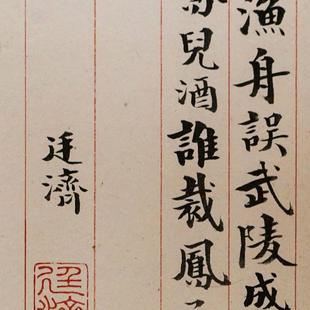 漁身誤武陵成
兒酒誰裁鳳
廷濟